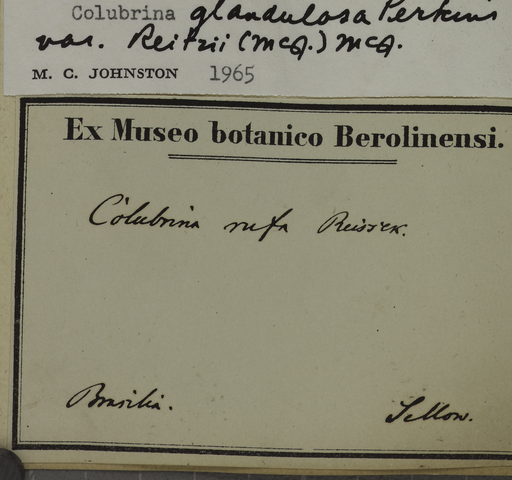 Colubrina glandulosa Perkins
var. Reitzii (MCJ.) MCJ.
M. C. JOHNSTON 1965
Ex Museo botanico Berolinensi.
Colubrina rufa Reissek.
Brasilia.
Sellow.